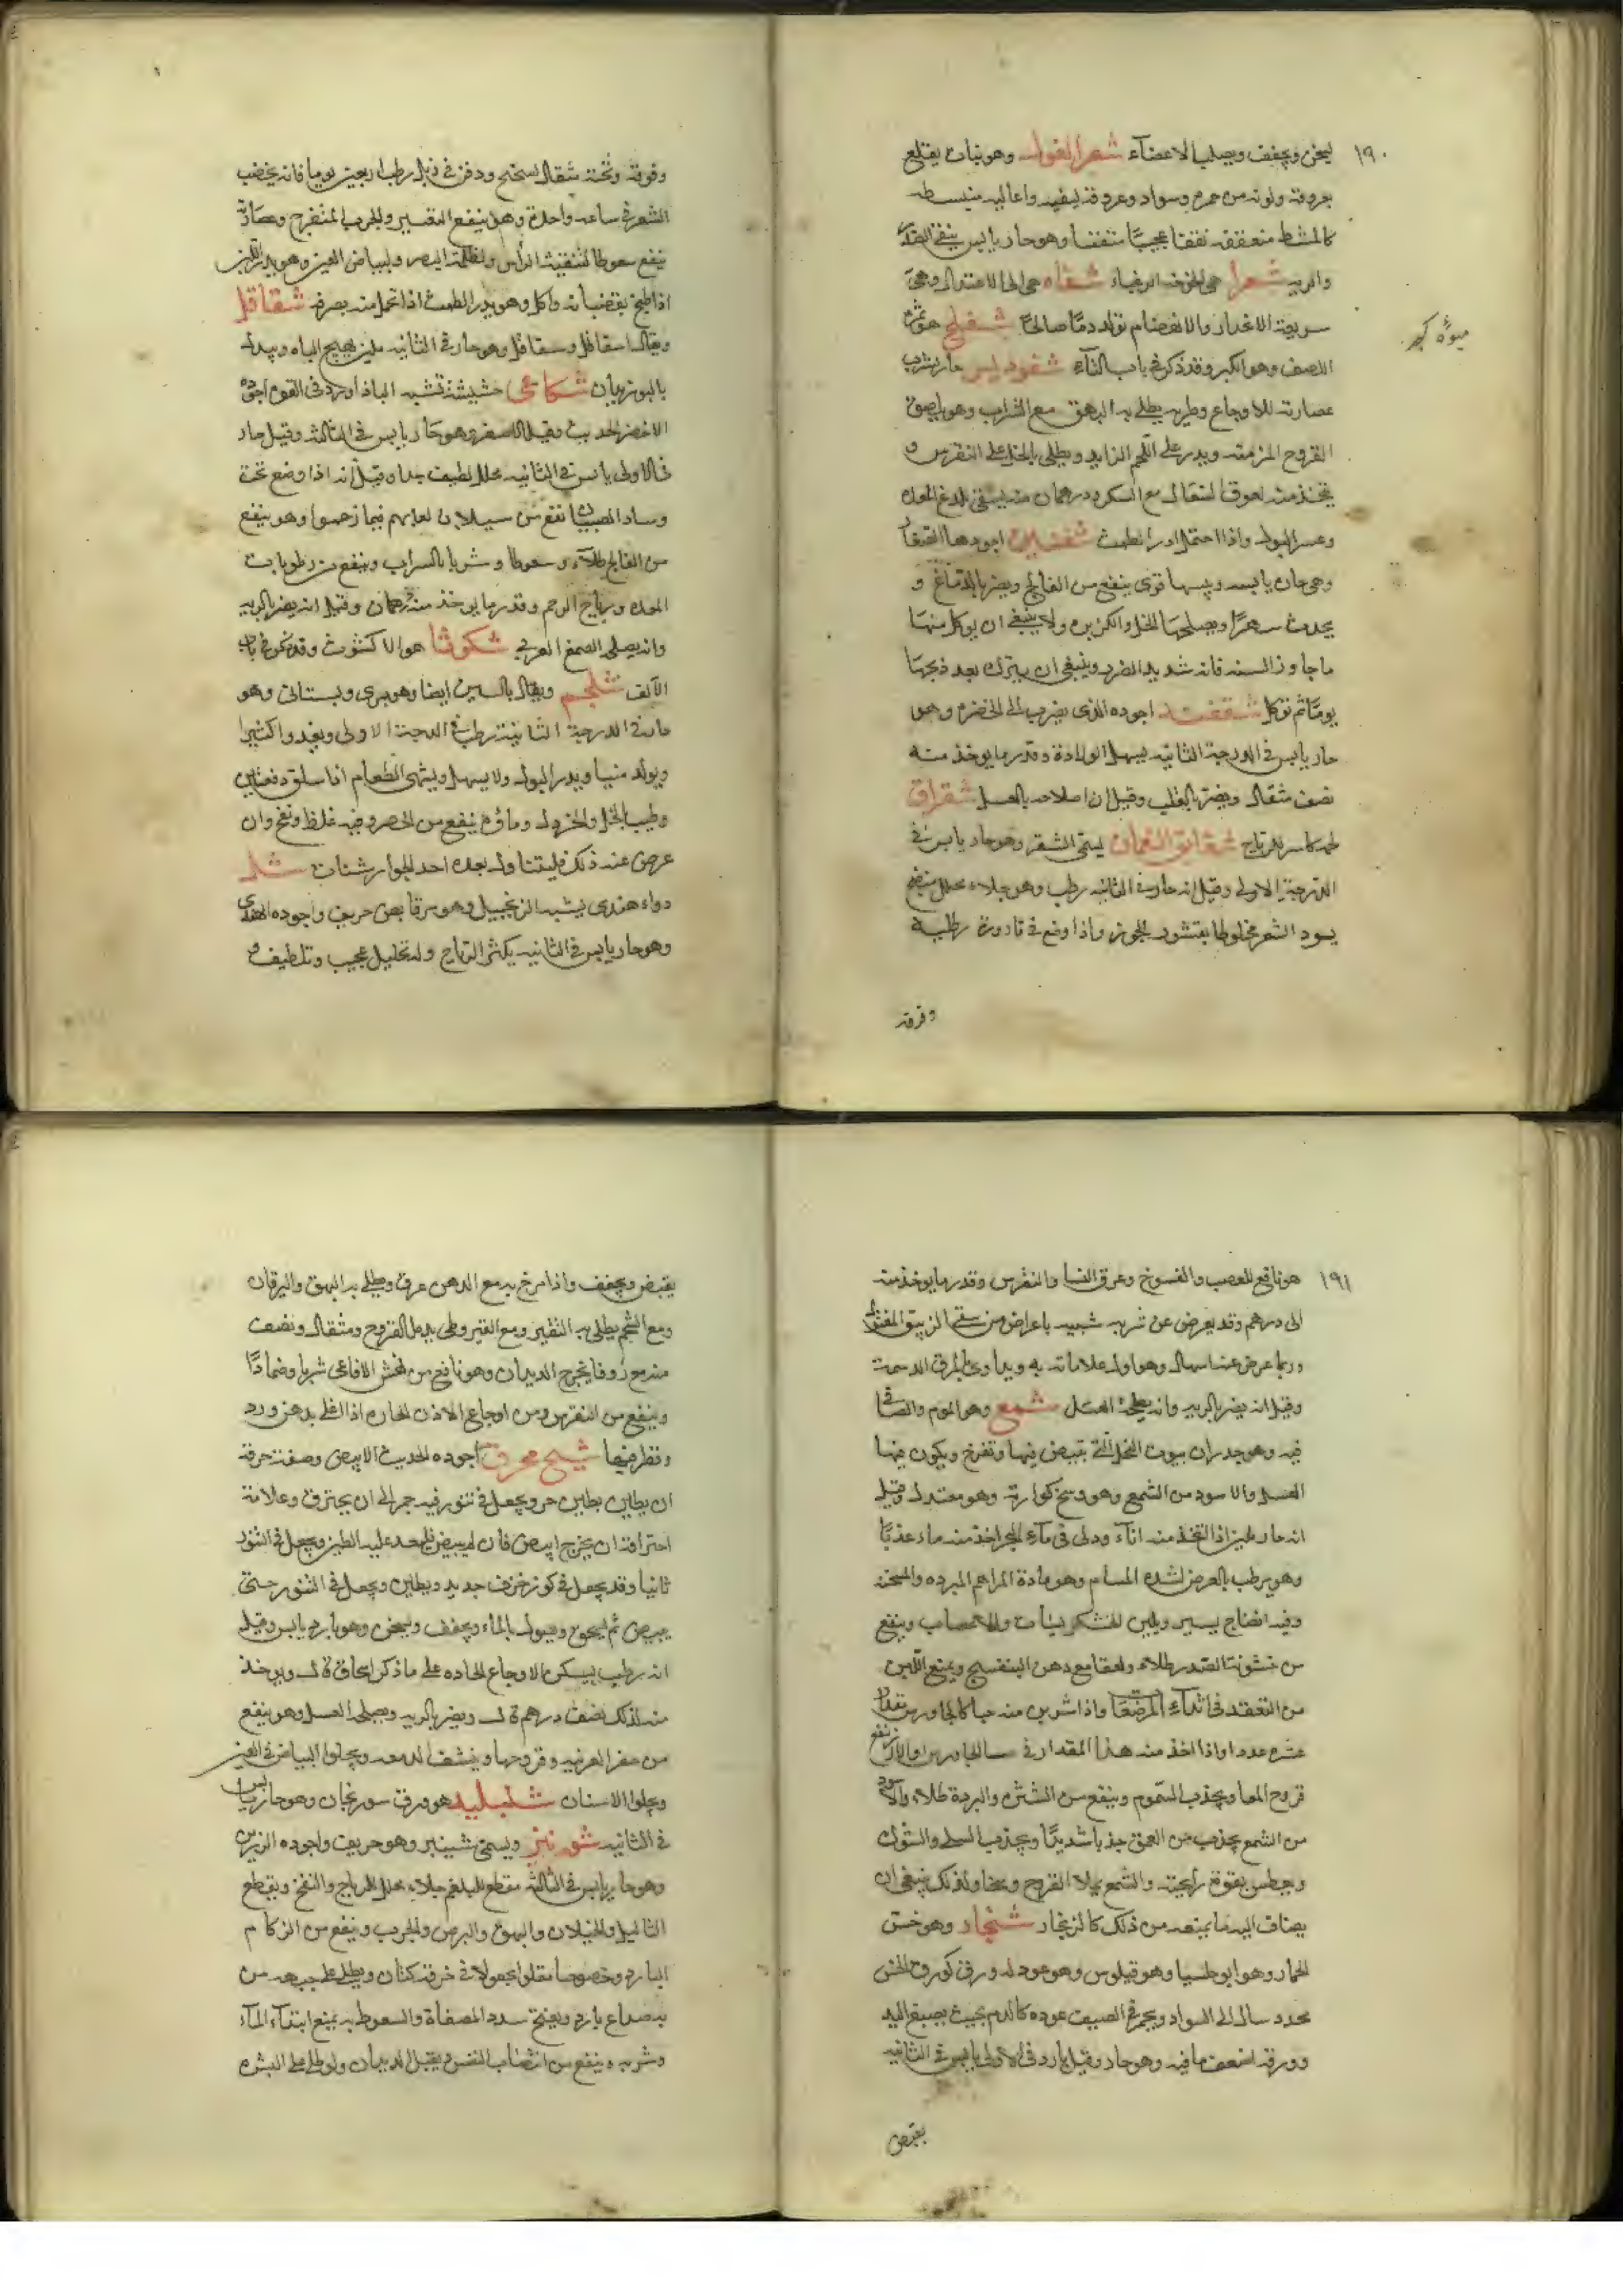 ١٩٠
يسخن ويجفف ويصلب الاعضاء شعر الغول وهو نبات يقتلع
بعروقه ولونه من حمرة وسواد وعروقه ليفيه واعاليه منبسطه
كالمشط متعقفه تعقفا عجيبا متفننا وهو حار يابس ينقي الصدر
والريه شعرا هي الخوخه الزغباء شفاه هي الى الاعتدال وهي
سريعة الانحدار والانهضام تولد دما صالحا شفلح هو ثمرة
اللصف وهو الكبر وقد ذكر في باب الثاء شقوديس حار يشرب
ميوه كبر
عصارته للاوجاع وطريه يطلى به البهق مع الشراب وهو يلصق
القروح المزمنه ويدر على اللحم الزايد ويطلى بالخل على النقرس و
يتخذ منه لعوق للسعال مع السكر ودرهمان منه يسقى للدغ المعده
وعسر البول واذا احتمل ادر الطمث شفنين اجودها
وهي حاره يابسه ويبسها قوى ينفع من الفالج ويضر بالدماغ و
يحدث سهرا ويصلحها الخل والكزبره ولا ينبغى ان يوكل منها
ما جاوز السنه فانه شديد الضرر وينبغى ان يترك بعد ذبحها
يوما ثم توكل اجوده الذى يضرب الى الخضره وهو
حار يابس في الدرجة الثانيه يسهل الولادة وقدر ما يوخذ منه
نصف مثقال ويضر بالقلب وقيل ان اصلاحه بالعسل شقراق
لحمه كاسر للرياح شقائق النعمان يسمى الشقر وهو حار يابس في
الدرجة الاولى وقيل انه حار في الثانيه رطب وهو جلاء محلل منضج
يسود الشعر مخلوطا بقشور الجوز واذا وضع في قارورة رطليه
وفوقه
وفوقه وتحته مثقال ودفن في زبل رطب اربعين يوما فانه يخضب
الشعر في ساعه واحدة وهو ينفع التقشير والجرب المتقرح وعصارته
ينفع سعوطا لتنقيه الراس ولظلمة البصر ولبياض العين وهو يدر اللبن
اذا طبخ بقضبانه واكل وهو يدر الطمث اذا تحمل منه بصوفه شقاقل
ويقال اشقاقل وسقاقل وهو حار في الثانيه ملين يهيج الباه ويبدل
بالبوزيدان شكاعى حشيشة تشبه الباذاورد في القوه اجوده
الاخضر الحديث وقيل الاصفر وهو حار يابس في الثالثه وقيل حار
في الاولى يابس في الثانيه محلل لطيف جدا وقيل انه اذا وضع تحت
وساد الصبيان نفع من سيلان لعابهم فيما زعموا وهو ينفع
من الفالج طلاء وسعوطا وشربا بالشراب وينفع من رطوبات
المعده ورياح الرحم وقدر ما يوخذ منه درهمان وقيل انه يضر بالريه
وانه يصلحه الصمغ العربي شكوثا هو الاكشوث وقد ذكر في باب
الالف شلجم ويقال بالسين ايضا وهو برى وبستانى وهو
حار في الدرجة الثانية رطب في الدرجة الاولى ويغذوا كثيرا
ويولد منيا ويدر البول ولا يسهل ويشهى الطعام اذا سلق دفعتين
وطيب بالخل والخردل وماؤه ينفع من الحصر وفيه غلظ ونفخ وان
عرض عند ذلك فليتناول بعده احد الجوارشنات شل
دواء هندى يشبه الزنجبيل وهو مر قابض حريف واجوده الهندى
وهو حار يابس في الثانيه يكثر الرياح وله تحليل عجيب وتلطيف و
١٩١
هو نافع للعصب والفسوخ وعرق النسا والنقرس وقدر ما يوخذ منه
الى درهم وقد يعرض عن شربه شبيه باعراض من سقى الزيبق المقتول
وربما عرض عنه اسهال وهو اول علاماته به ويداوى بالمرق الدسمه
وقيل انه يضر بالريه وانه يصلحه العسل شمع وهو الموم والصافى
فيه وهو جدران بيوت النحل التى تبيض فيها وتفرخ ويكون فيها
العسل والاسود من الشمع وهو وسخ كوارته وهو معتدل وقيل
انه حار ملين اذا اتخذ منه اناء ودلى في ماء البحر اخذ منه ماء عذبا
وهو يرطب بالعرض لشده المسام وهو مادة المراهم المبرده والمسخنه
وفيه انضاج يسير ويلين للخشكريشات والاعصاب وينفع
من خشونة الصدر طلاء ولعقا مع دهن البنفسج ويمنع اللبن
من التعقد في اثداء المرضعات واذا شرب منه حبا كالجاورس مقدار
عشره عددا واذا اخذ منه هذا المقدار في حسا الجاورس او الارز نفع
قروح المعا ويجذب السموم وينفع من الشتره والبردة طلاء والاسود
من الشمع يجذب من العمق جذبا شديدا ويجذب السلى والشوك
ويعطس بقوة رايحته والشمع يملا القروح وسخا ولذلك ينبغى ان
يضاف اليه ما يمنعه من ذلك كالزنجار شنجار وهو خس
الحمار وهو ابو حلسيا وهو فيلوس وهو عود له ورق كورق الخس
محدد سال الى السواد ويحمر في الصيف عوده كالدم بحيث يصبغ اليد
وورقه اضعف ما فيه وهو حار وقيل بارد في الاولى يابس في الثانيه
يقبض
يقبض ويجفف واذا مرخ به مع الدهن عرق ويطلى به البهق واليرقان
ومع الشحم يطلى به التقشير ومع القيروطى يدمل القروح ومثقال ونصف
منه مع زوفا يخرج الديدان وهو نافع من نهش الافاعى شربا وضمادا
وينفع من النقرس ومن اوجاع الاذن الحاره اذا اغلى بدهن ورد
وقطر فيها شيح محرق اجوده الحديث الابيض وصفة حرقه
ان يطلين بطين حر ويجعل في تنور فيه جمر الى ان يحترق وعلامة
احتراقه ان يخرج ابيض فان لم يبيض فليعد عليه الطين ويجعل في التنور
ثانيا وقد يجعل في كوز خزف جديد ويطلين ويجعل في التنور حتى
يبيض ثم يسحق ويبول بالماء ويجفف ويسخن وهو بارد يابس وقيل
انه رطب يسكن الاوجاع الحاده على ما ذكر اسحاق قال ويوخذ
منه لذلك نصف درهم قال ويضر بالريه ويصلحه العسل وهو ينفع
من حفر القرنيه وقروحها وينشف الدمعه ويجلوا البياض في العين
ويجلوا الاسنان شنبليد هو ورق سورنجان وهو حار يابس
في الثانيه شونيز ويسمى شينيز وهو حريف واجوده الرزين
وهو حار يابس في الثالثه مقطع للبلغم جلاء محلل للرياح والنفخ ويقطع
الثاليل والخيلان والبهق والبرص والجرب وينفع من الزكام
البارد وخصوصا مقلوا مجعولا في خرقة كتان ويطلى على جبهه من
به صداع بارد ويفتح سدد المصفاة والسعوط به يمنع ابتداء الماء
وشربه ينفع من انتصاب النفس ويقتل الديدان ولو طلى على السره